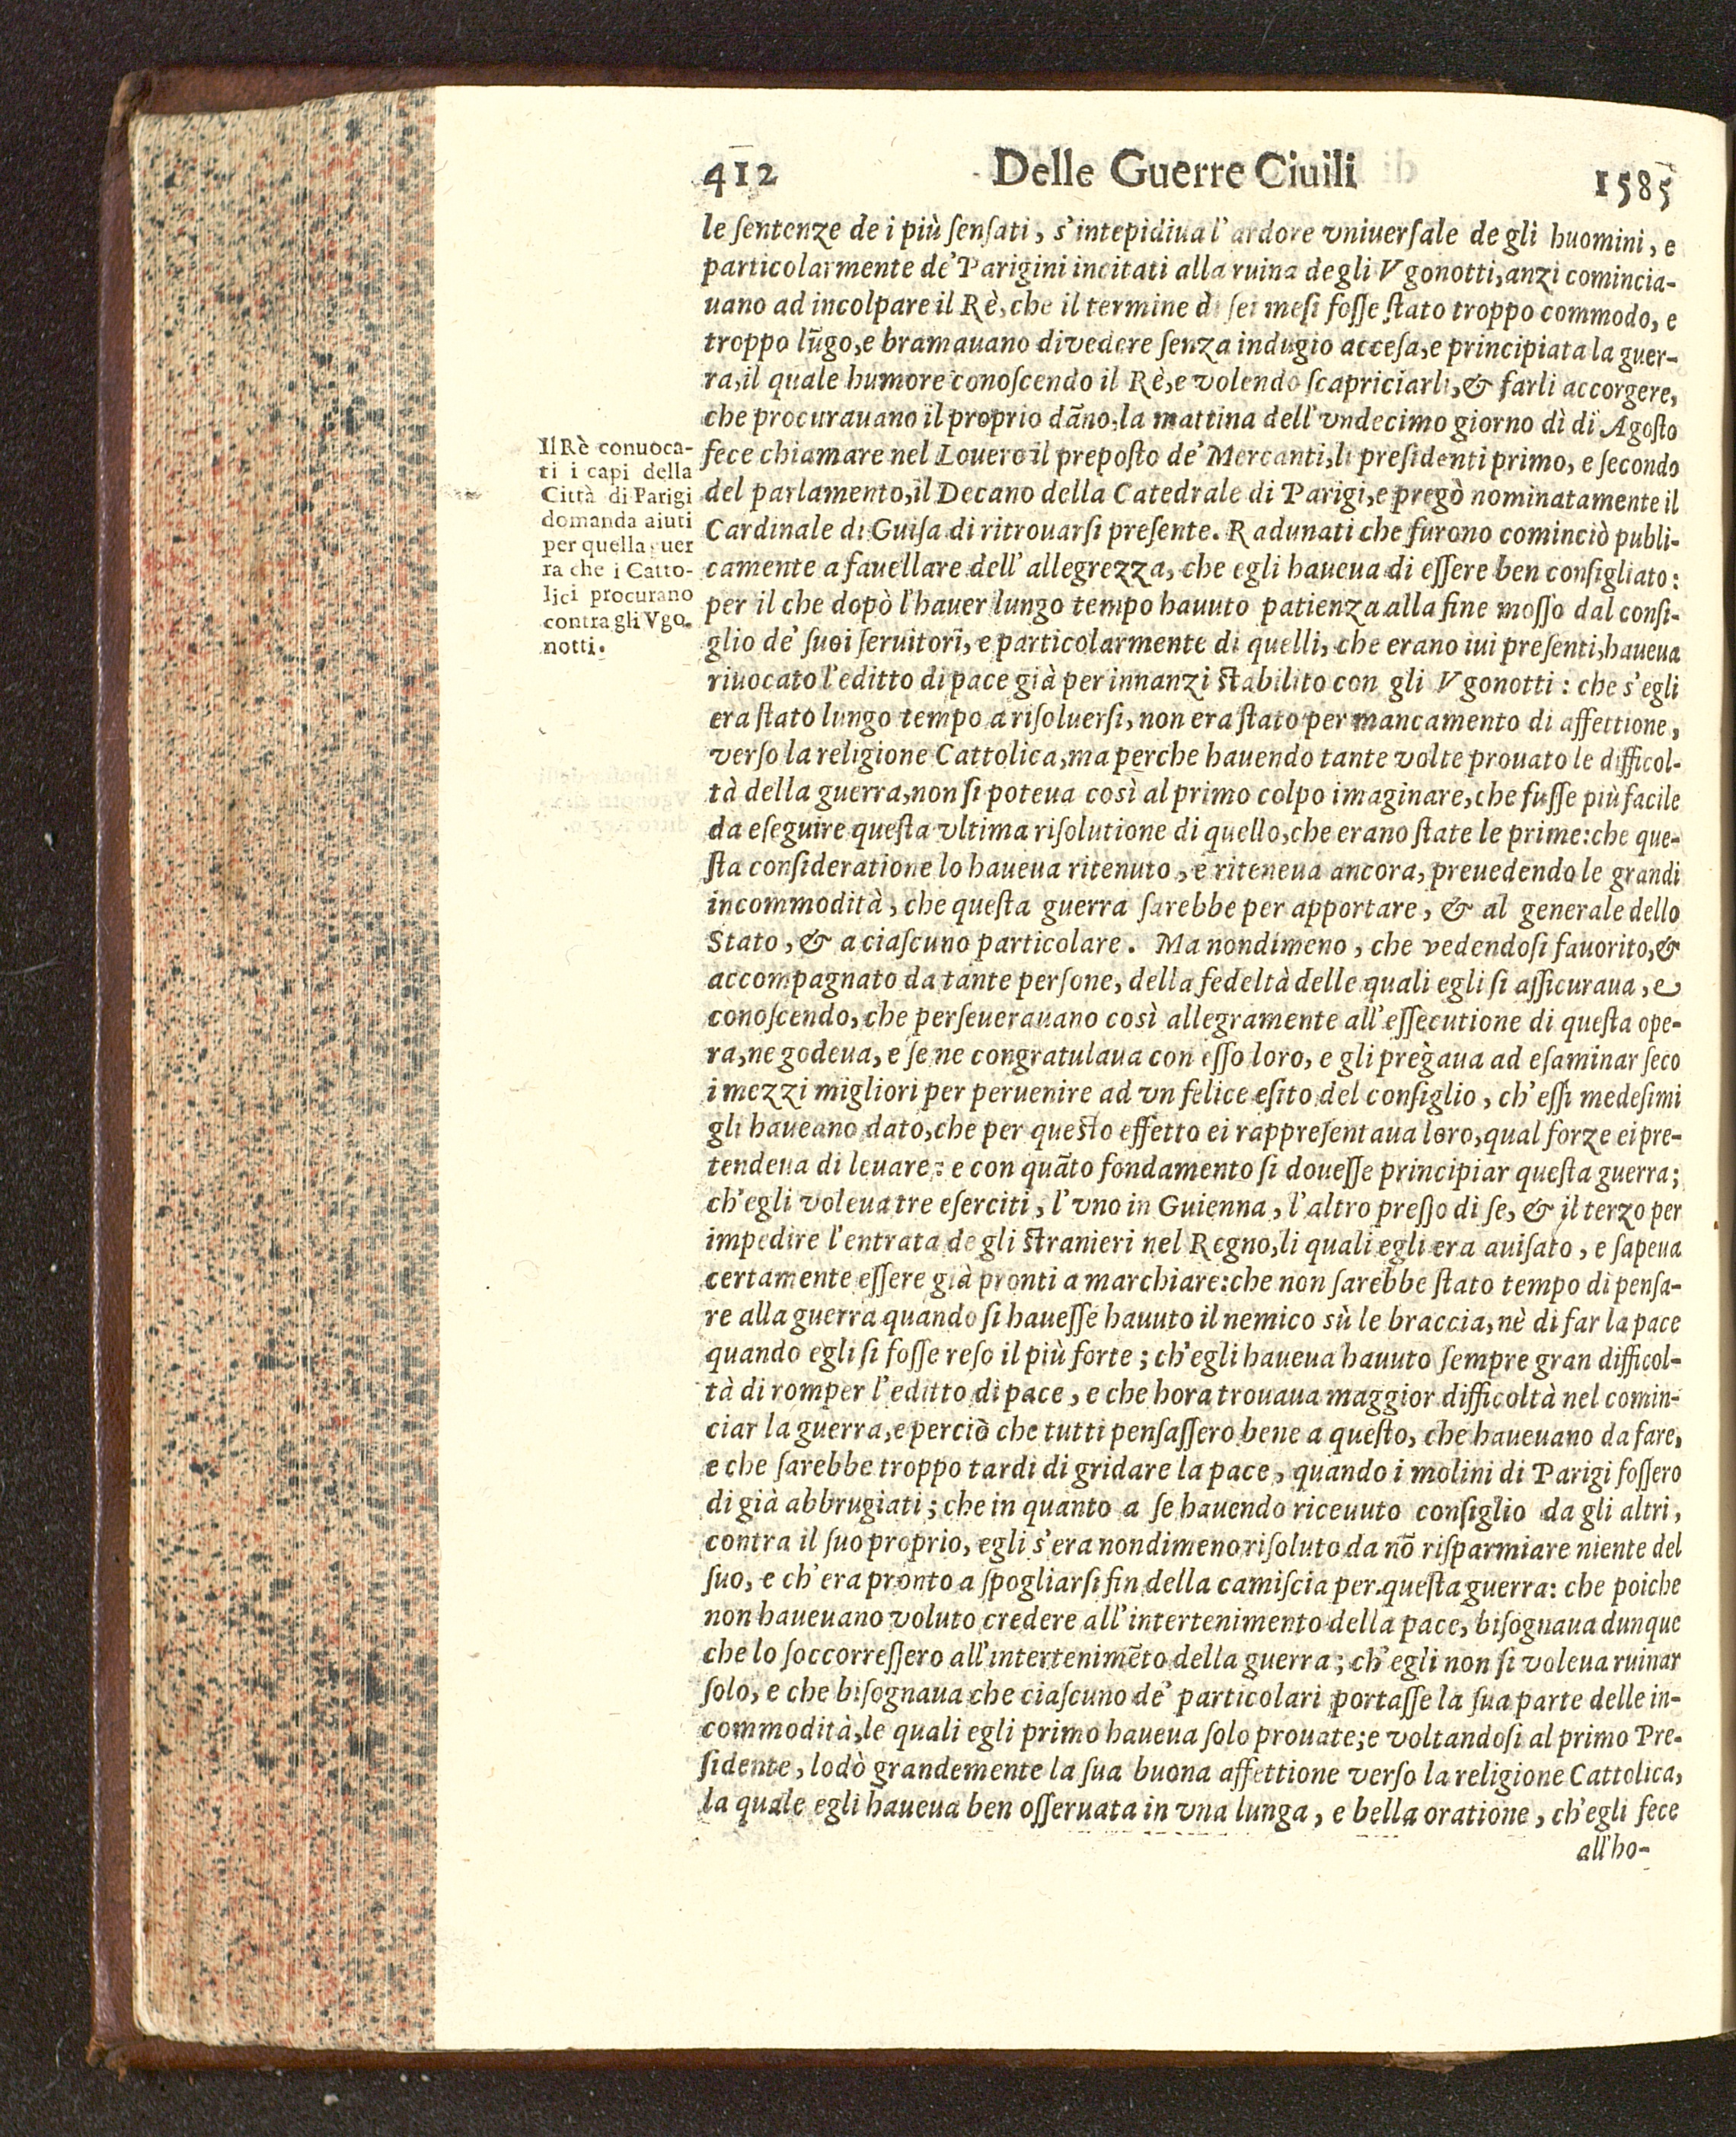 412 Delle Guerre Ciuili 1585
le ſentenze de i più ſenſati, s'intepidiua l'ardore vniuerſale degli huomini, e
particolarmente de' Parigini incitati alla ruina degli Vgonotti, anzi comincia-
uano ad incolpare il Rè, che il termine di ſei meſi foſſe ſtato troppo commodo, e
troppo lūgo, e bramauano di vedere ſenza indugio acceſa, e principiata la guer-
ra, il quale humore conoſcendo il Rè, e volendo ſcapriciarli, & farli accorgere,
che procurauano il proprio dāno, la mattina dell'vndecimo giorno dì di Agoſto
fece chiamare nel Louero il prepoſto de' Mercanti, li preſidenti primo, e ſecondo
del parlamento, il Decano della Catedrale di Parigi, e pregò nominatamente il
Cardinale di Guiſa di ritrouarſi preſente. Radunati che furono cominciò publi-
camente a fauellare dell'allegrezza, che egli haueua di eſſere ben conſigliato:
per il che dopò l'hauer lungo tempo hauuto patienza alla fine moſſo dal conſi-
glio de' ſuoi ſeruitori, e particolarmente di quelli, che erano iui preſenti, haueua
riuocato l'editto di pace già per innanzi ſtabilito con gli Vgonotti: che s'egli
era ſtato lungo tempo a riſoluerſi, non era ſtato per mancamento di affettione,
verſo la religione Cattolica, ma perche hauendo tante volte prouato le difficol-
tà della guerra, non ſi poteua così al primo colpo imaginare, che fuſſe più facile
da eſeguire queſta vltima riſolutione di quello, che erano ſtate le prime: che que-
ſta conſideratione lo haueua ritenuto, e riteneua ancora, preuedendo le grandi
incommodità, che queſta guerra ſarebbe per apportare, & al generale dello
Stato, & a ciaſcuno particolare. Ma nondimeno, che vedendoſi fauorito, &
accompagnato da tante perſone, della fedeltà delle quali egli ſi aſſicuraua, e
conoſcendo, che perſeuerauano così allegramente all'eſſecutione di queſta ope-
ra, ne godeua, e ſe ne congratulaua con eſſo loro, e gli pregaua ad eſaminar ſeco
i mezzi migliori per peruenire ad vn felice eſito del conſiglio, ch'eſſi medeſimi
gli haueano dato, che per queſto effetto ei rappreſentaua loro, qual forze ei pre-
tendeua di leuare: e con quāto fondamento ſi doueſſe principiar queſta guerra;
ch'egli voleua tre eſerciti, l'vno in Guienna, l'altro preſſo di ſe, & il terzo per
impedire l'entrata degli ſtranieri nel Regno, li quali egli era auiſato, e ſapeua
certamente eſſere già pronti a marchiare: che non ſarebbe ſtato tempo di penſa-
re alla guerra quando ſi haueſſe hauuto il nemico sù le braccia, nè di far la pace
quando egli ſi foſſe reſo il più forte; ch'egli haueua hauuto ſempre gran difficol-
tà di romper l'editto di pace, e che hora trouaua maggior difficoltà nel comin-
ciar la guerra, e perciò che tutti penſaſſero bene a queſto, che haueuano da fare,
e che ſarebbe troppo tardi di gridare la pace, quando i molini di Parigi foſſero
di già abbrugiati; che in quanto a ſe hauendo riceuuto conſiglio da gli altri,
contra il ſuo proprio, egli s'era nondimeno riſoluto da nō riſparmiare niente del
ſuo, e ch'era pronto a ſpogliarſi fin della camiſcia per queſta guerra: che poiche
non haueuano voluto credere all'intertenimento della pace, biſognaua dunque
che lo ſoccorreſſero all'intertenimēto della guerra; ch'egli non ſi voleua ruinar
ſolo, e che biſognaua che ciaſcuno de' particolari portaſſe la ſua parte delle in-
commodità, le quali egli primo haueua ſolo prouate; e voltandoſi al primo Pre-
ſidente, lodò grandemente la ſua buona affettione verſo la religione Cattolica,
la quale egli haueua ben oſſeruata in vna lunga, e bella oratione, ch'egli fece
all'ho-
Il Rè conuoca-
ti i capi della
Città di Parigi
domanda aiuti
per quella guer
ra che i Catto-
lici procurano
contra gli Vgo-
notti.